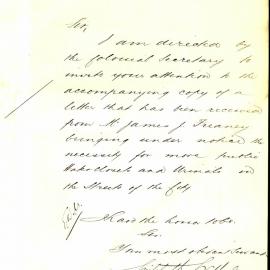 Sir,
I am directed by
the Colonial Secretary to
invite your attention to the
accompanying copy of a
letter that has been received
from Mr James J. Treaney
bringing under notice the
necessity for more public
Water closets and Urinals in
the Streets of the City
I have the honor to be
Sir
Your most obedient servant